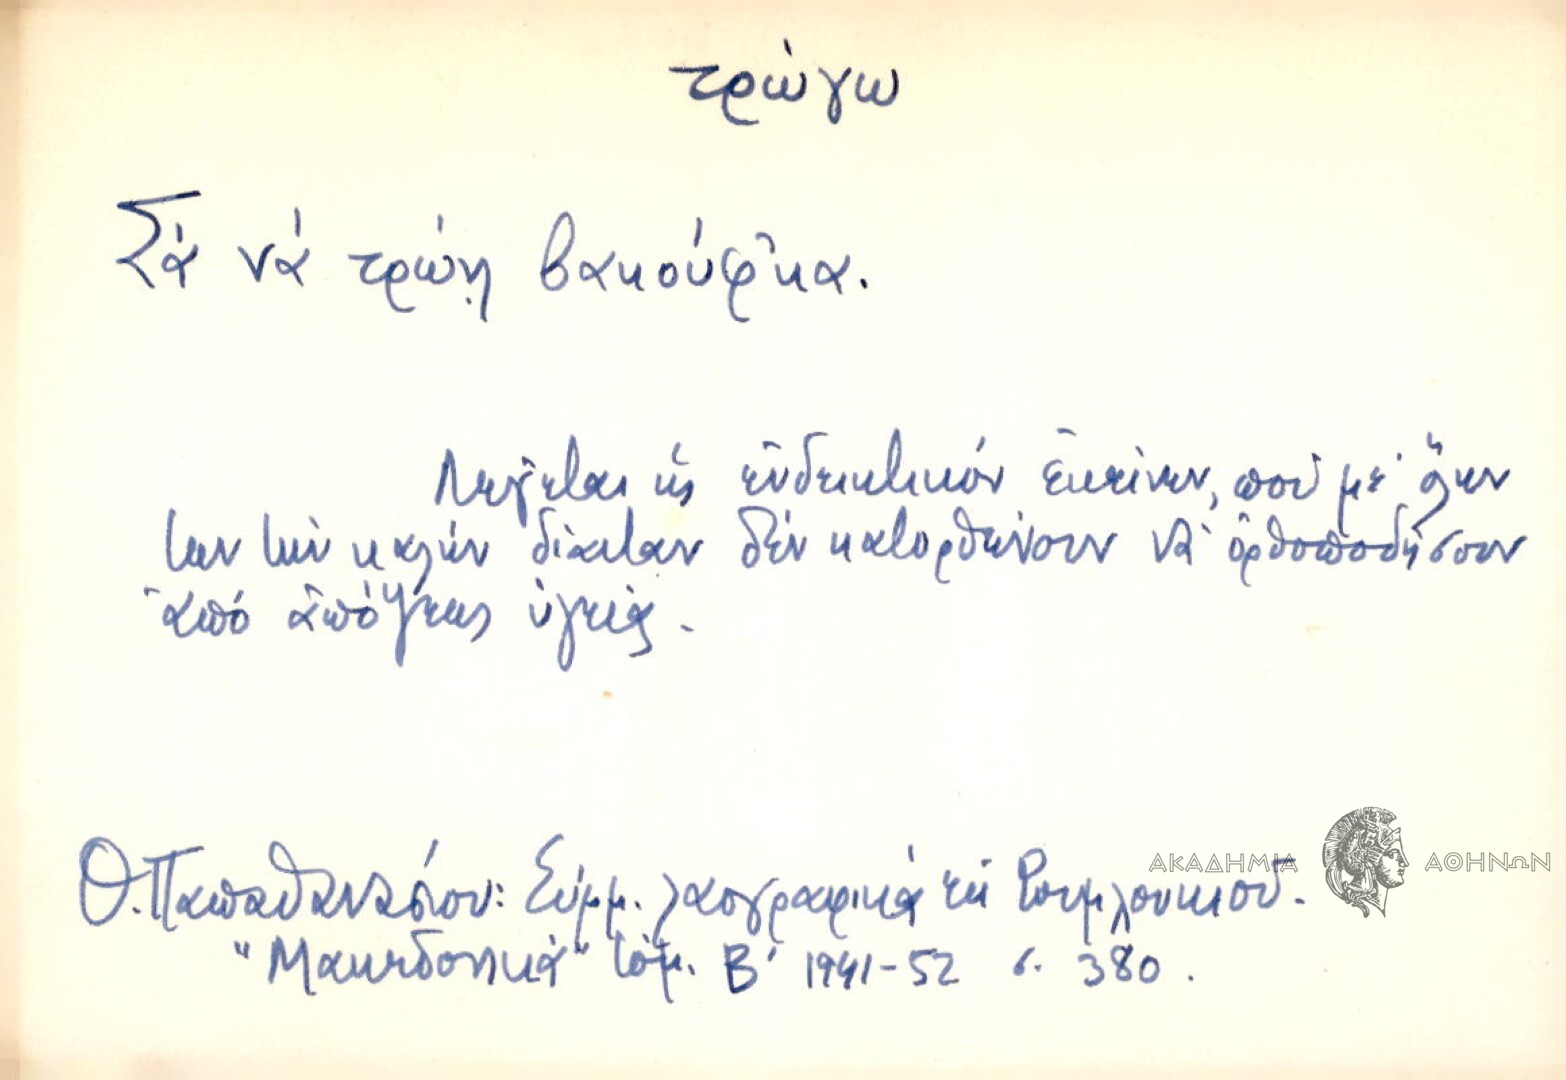 τρώγω
Σά νά τρώῃ βακούφ'κα.
Λέγεται ὡς ἐνδεικτικόν ἐκείνων, πού μέ ὅλην
των τήν καλήν δίαιταν δέν κατορθώνουν νά ὀρθοποδήσουν
ἀπό ἀπόψεως ὑγείας.
ΑΚΑΔΗΜΙΑ ΑΘΗΝΩΝ
Θ. Παπαθανασίου: Σύμμ. λαογραφικά τοῦ Ρουμλουκιοῦ.
"Μακεδονικά" τόμ. Β' 1941-52 σ. 380.